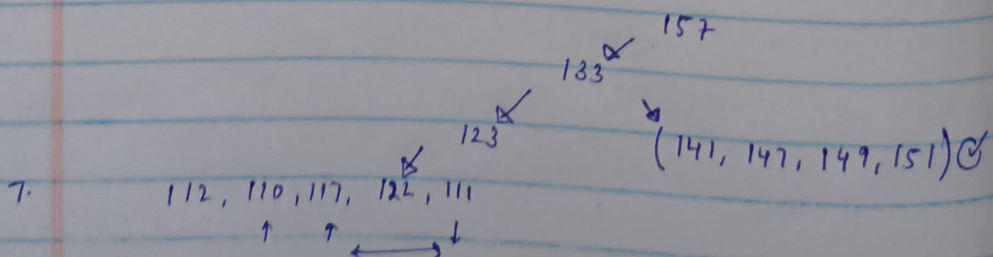 157
133
123
(141, 147, 149, 151)
7. 112, 110, 117, 122, 111